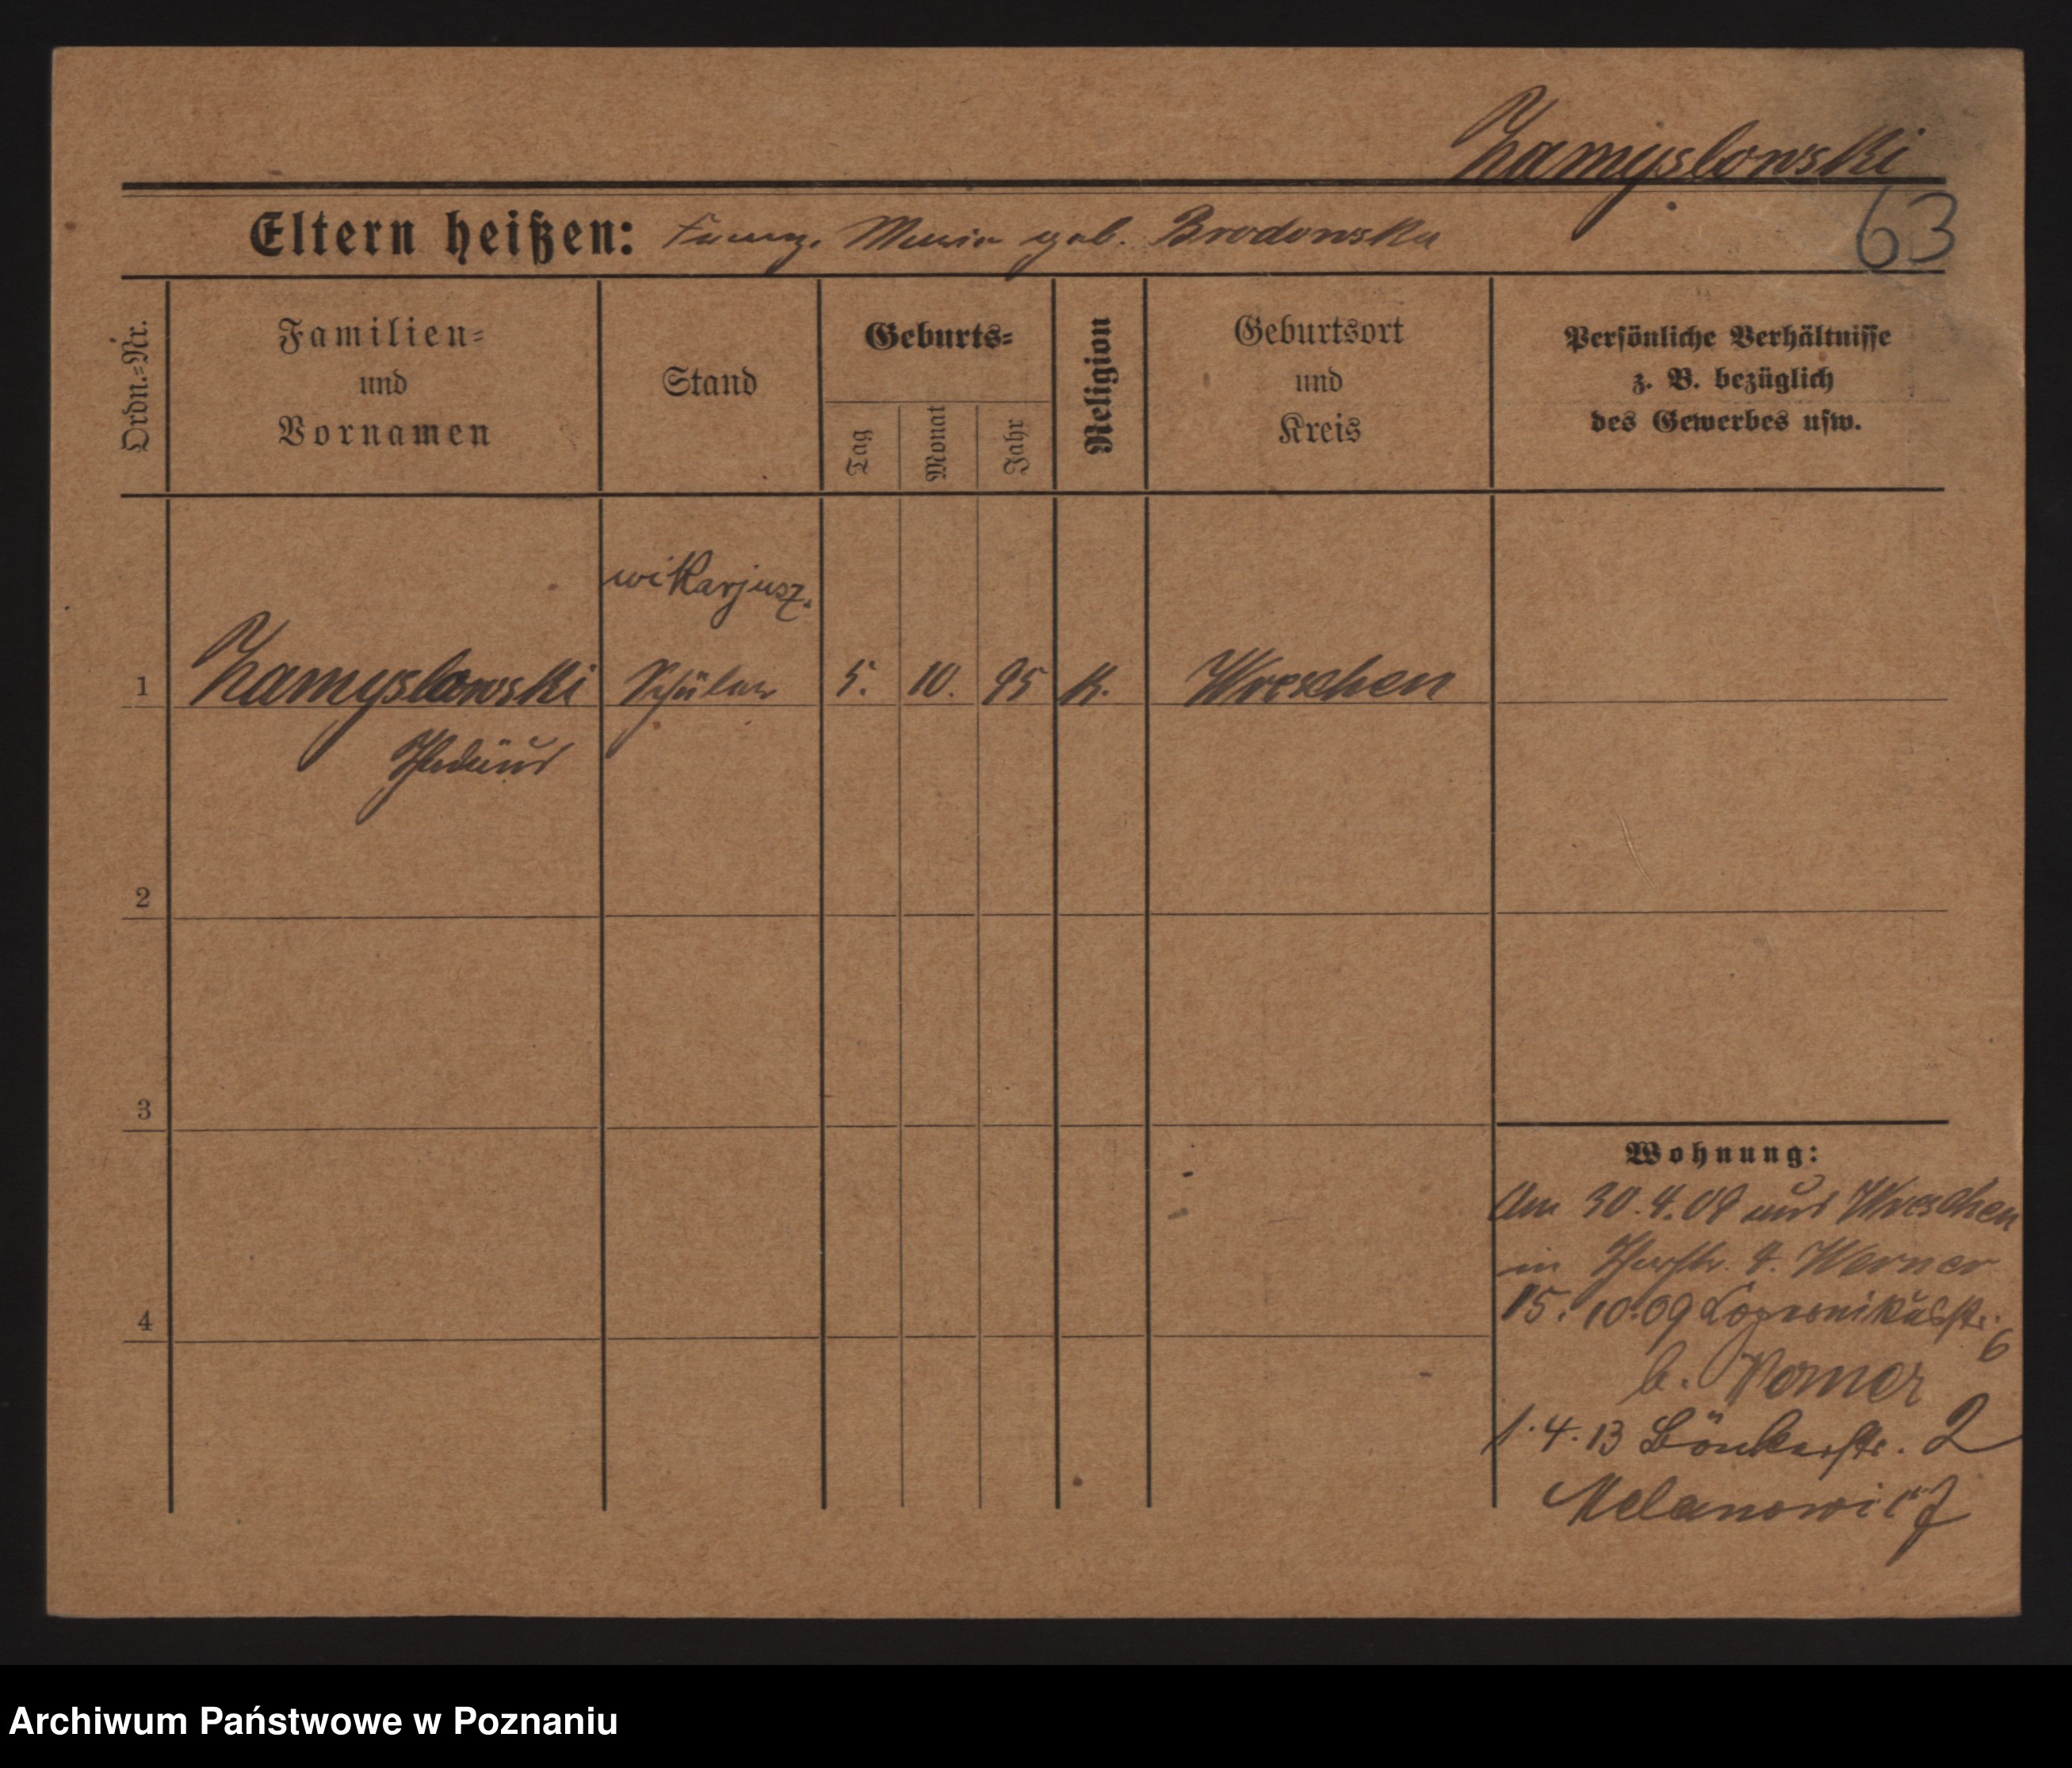 Zamyslowski
63
Eltern heißen: Franz, Maria geb. Brodowska
Ordn.=Nr.
Familien=
und
Vornamen
Stand
Geburts=
Tag
Monat
Jahr
Religion
Geburtsort
und
Kreis
Persönliche Verhältnisse
z. B. bezüglich
des Gewerbes usw.
wikarjusz.
1 Zamyslowski Schüler 5. 10. 95 K. Wreschen
Thadäus
2
3
4
Wohnung:
Am 30.4.08 aus Wreschen
in 4. Werner
15.10.09 Kopernikusstr.
6
b. Werner
1.4.13 Bönkerstr. 2
Melanowicz
Archiwum Państwowe w Poznaniu